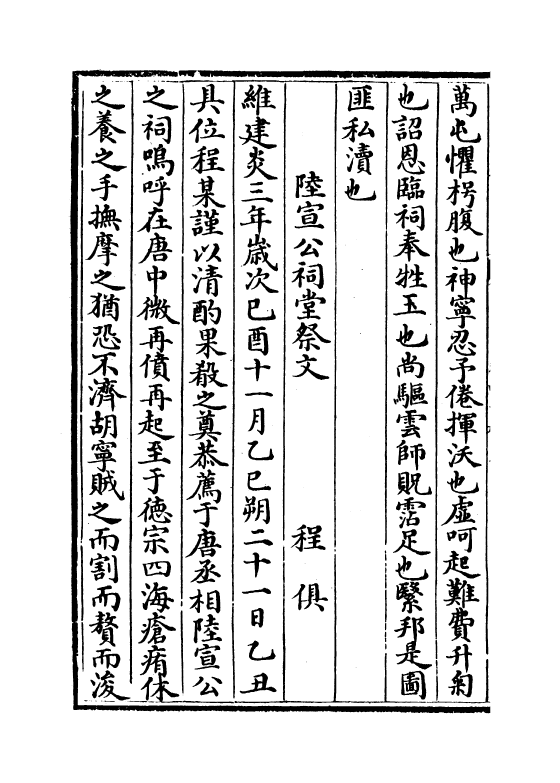 萬屯懼枵腹也神寧忍予倦揮沃也虛呵起難費升匊
也詔恩臨祠奉牲玉也尚驅雲師貺霑足也繄邦是圖
匪私瀆也
陸宣公祠堂祭文　程俱
維建炎三年歲次已酉十一月乙巳朔二十一日乙丑
具位程某謹以清酌果殽之奠恭薦于唐丞相陸宣公
之祠嗚呼在唐中微再僨再起至于德宗四海瘡痏休
之養之手撫摩之猶恐不濟胡寧賊之而割而贅而浚